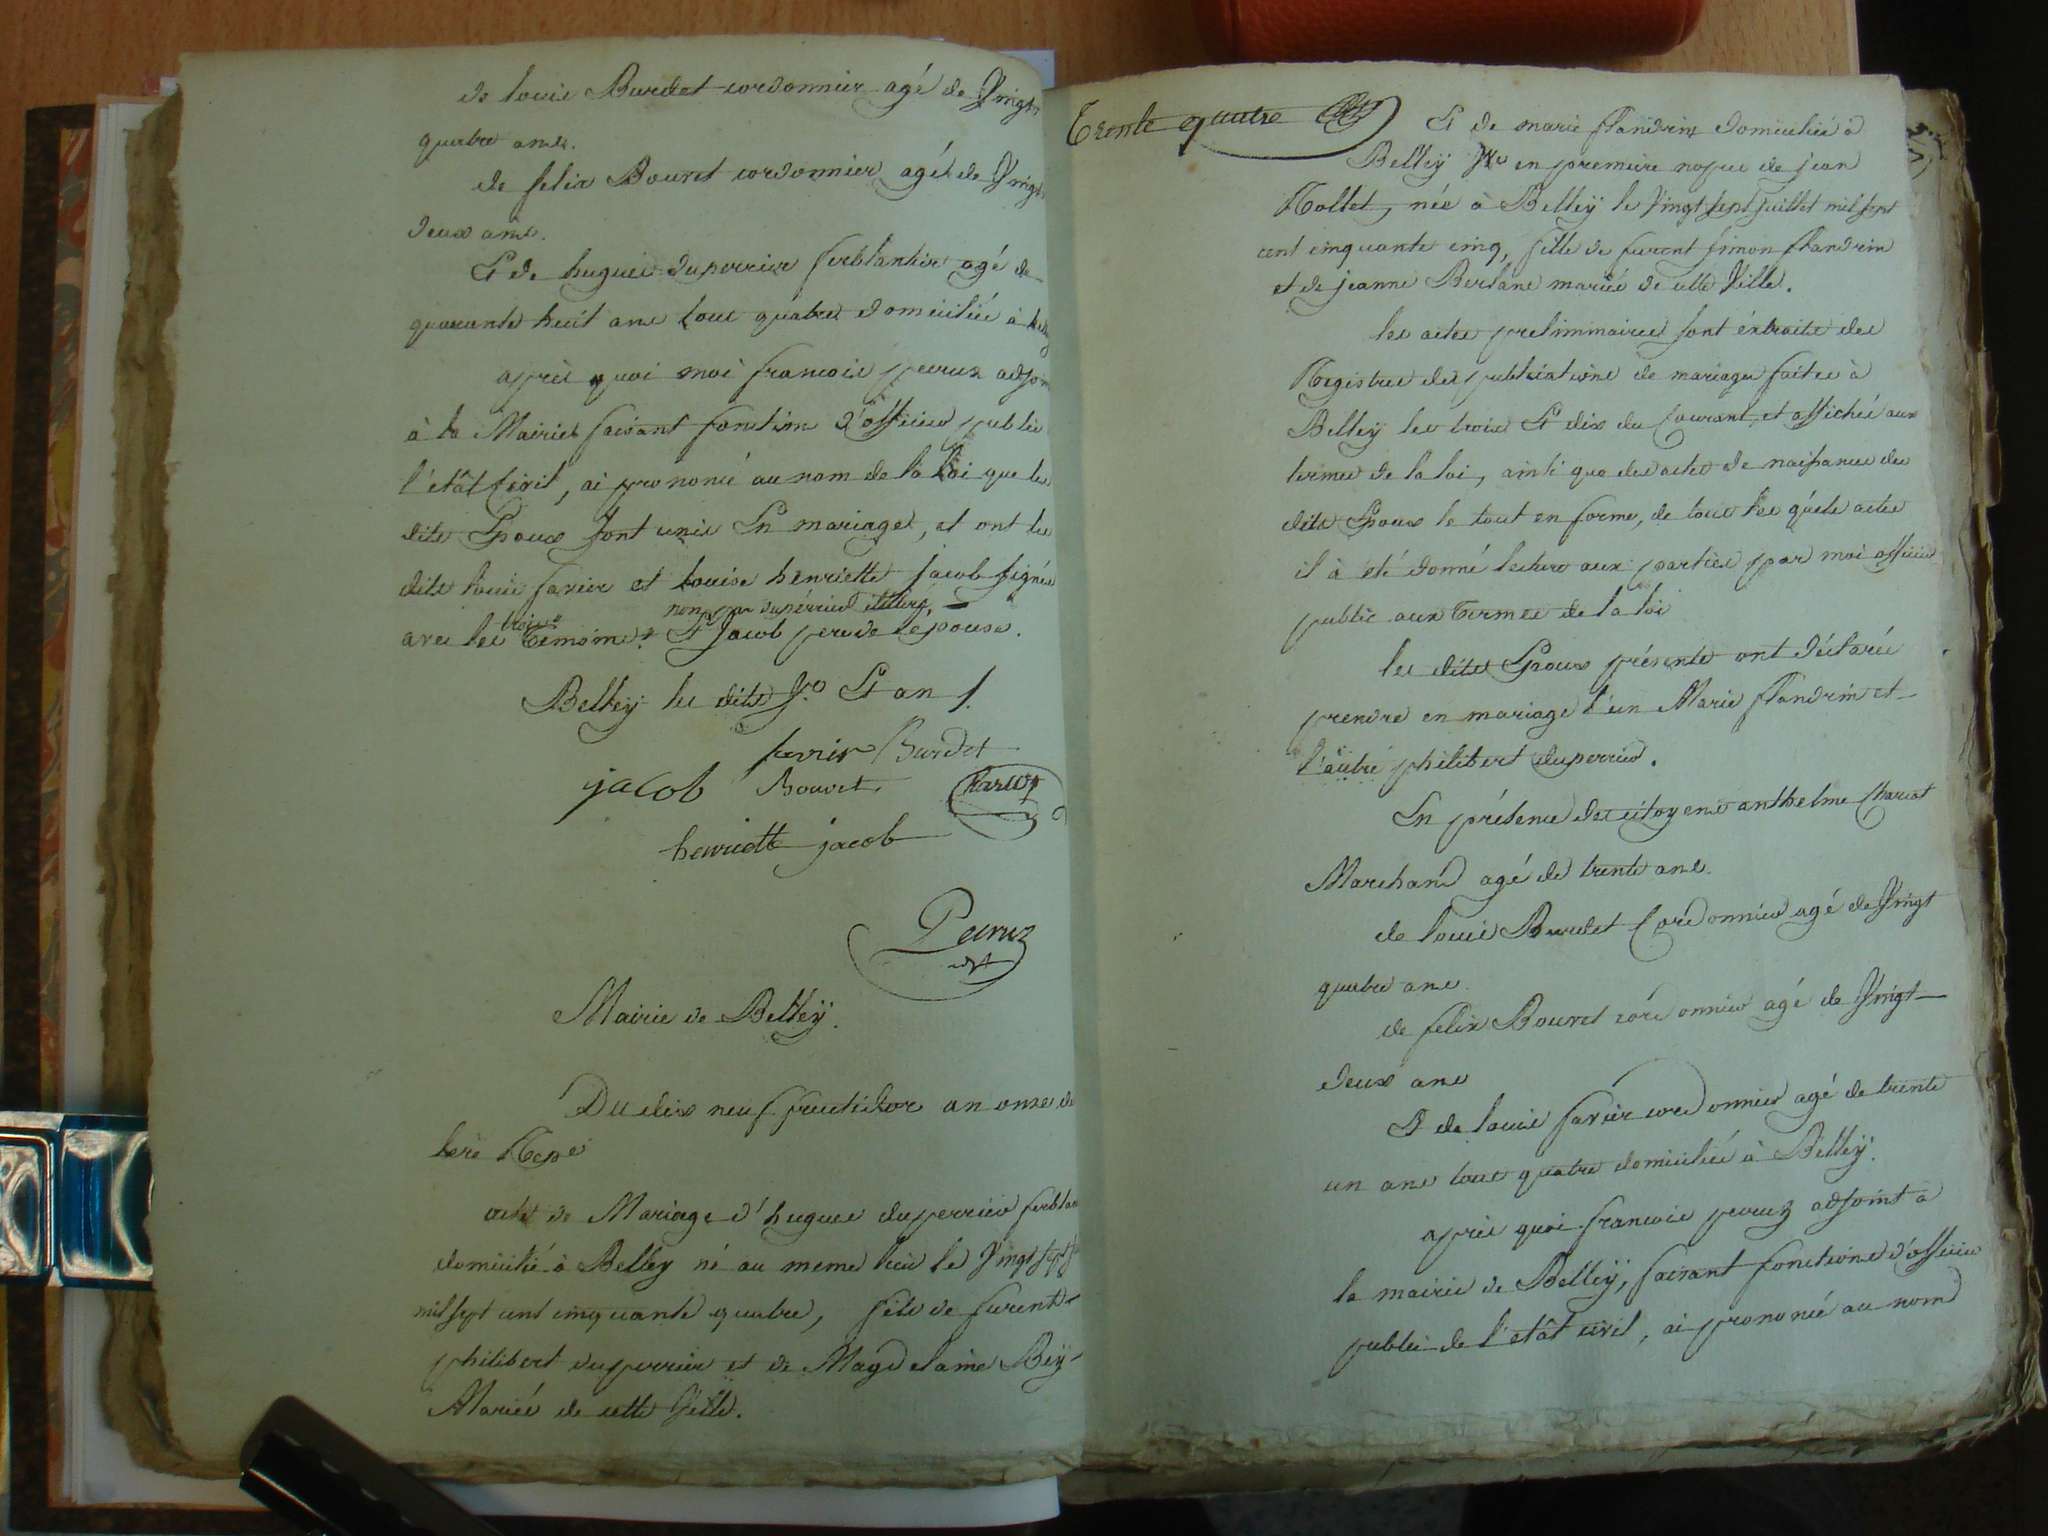 de louis Burdet cordonnier agé de Vingt
quatre ans.
de felix Bouvet cordonnier agé de Vingt
deux ans.
Et de hugues duperrier ferblantier agé de
quarante huit ans tous quatre domiciliés à
après quoi moi francois peruz adjoint
à la Mairie faisant fonction d'officier public
l'état Civil, ai prononcé au nom de la Loi que les
dits Epoux sont unis En mariage, et ont les
dits louis favier et louise henriette jacob signés
trois
non duperrier illitéré,
avec les temoins Et jacob pere de l'epouse.
Belley les dits Jr. Et an /.
favier Burdet
jacob Bouvet Chariot
henriette jacob
Peruz
adjt
Mairie de Belleÿ.
Du dix neuf fructidor an onze de
l'ere Repe
acte de Mariage d'hugues duperrier ferblan
domicilié à Belley né au meme lieu le Vingt sept
mil sept cent cinquante quatre, fils de furent
philibert duperrier et de Magdelaine Beÿ
Mariés de cette Ville.
Trente quatre
Et de marie flandrin domiciliée à
Belleÿ Vve en premiere nopce de jean
Rollet, née à Belleÿ le Vingt sept juillet mil sept
cent cinquante cinq, fille de furent simon flandrin
et de jeanne Berlane mariés de cette Ville.
les actes preliminaires sont éxtraits des
Registres des publications de mariage faites à
Belleÿ les trois Et dix du Courant, et affichés aux
termes de la loi, ainsi que des actes de naissances des
dits Epoux le tout en forme, de tous les quels actes
il à eté donné lecture aux parties par moi officier
public aux termes de la loi
les dits Epoux présents ont déclarés
prendre en mariage l'un Marie flandrin et
l'autre philibert duperrier.
En présence des citoyens anthelme Chariot
Marchand agé de trente ans.
de louis Burdet Cordonnier agé de Vingt
quatre ans.
de felix Bouvet cordonnier agé de Vingt
deux ans
Et de louis favier cordonnier agé de trente
un ans tous quatre domiciliés à Belleÿ.
après quoi francois peruz adjoint à
la mairie de Belleÿ, faisant fonctions d'officier
public de l'etât civil, ai prononcé au nom